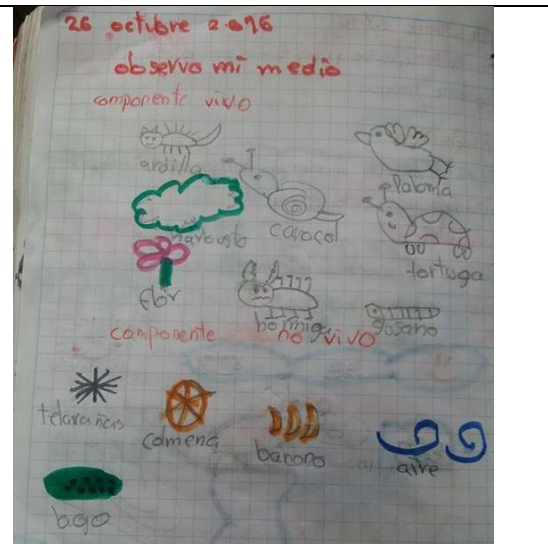 26 octubre 2.016
observo mi medio
componente vivo
ardilla
Paloma
harbusto caracol
tortuga
flor
hormiga gusano
componente no vivo
telarañas
colmena
banono
aire
lago